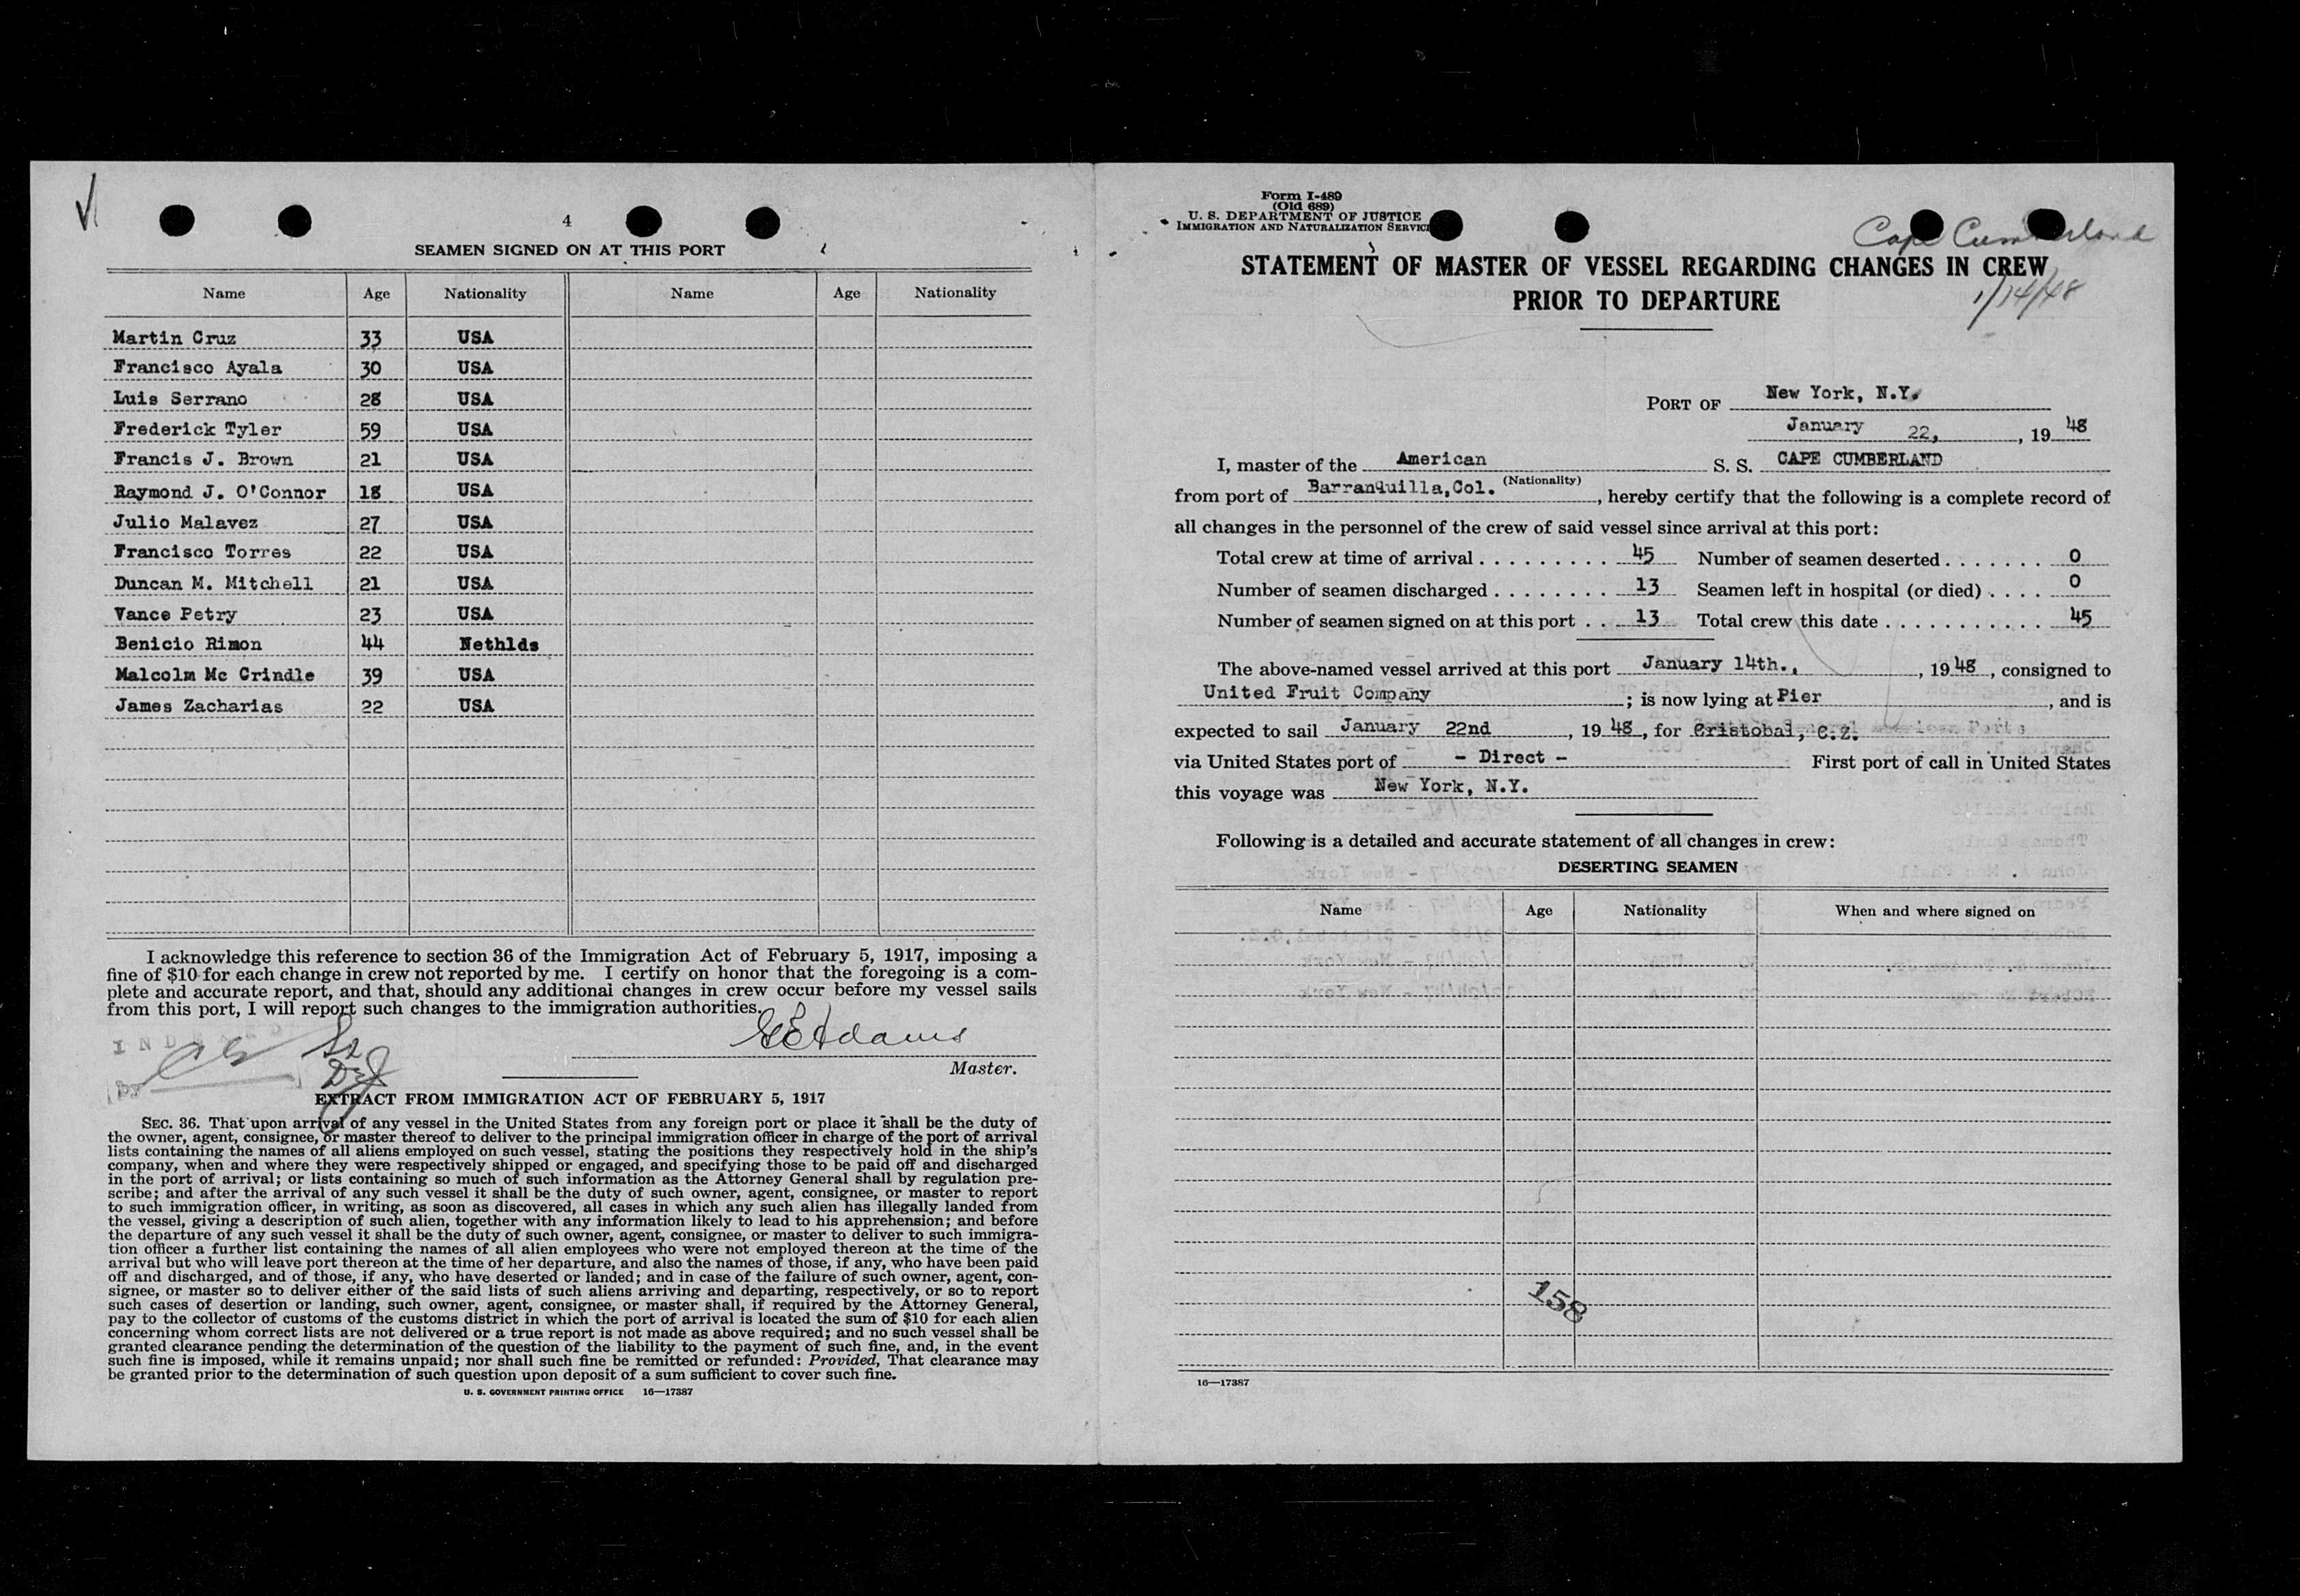 4
SEAMEN SIGNED ON AT THIS PORT
Name Age Nationality Name Age Nationality
Martin Cruz 33 USA
Francisco Ayala 30 USA
Luis Serrano 28 USA
Frederick Tyler 59 USA
Francis J. Brown 21 USA
Raymond J. O'Connor 18 USA
Julio Malavez 27 USA
Francisco Torres 22 USA
Duncan M. Mitchell 21 USA
Vance Petry 23 USA
Benicio Rimon 44 Nethlds
Malcolm Mc Crindle 39 USA
James Zacharias 22 USA
I acknowledge this reference to section 36 of the Immigration Act of February 5, 1917, imposing a
fine of $10 for each change in crew not reported by me. I certify on honor that the foregoing is a com-
plete and accurate report, and that, should any additional changes in crew occur before my vessel sails
from this port, I will report such changes to the immigration authorities.
GEAdams
Master.
EXTRACT FROM IMMIGRATION ACT OF FEBRUARY 5, 1917
SEC. 36. That upon arrival of any vessel in the United States from any foreign port or place it shall be the duty of
the owner, agent, consignee, or master thereof to deliver to the principal immigration officer in charge of the port of arrival
lists containing the names of all aliens employed on such vessel, stating the positions they respectively hold in the ship's
company, when and where they were respectively shipped or engaged, and specifying those to be paid off and discharged
in the port of arrival; or lists containing so much of such information as the Attorney General shall by regulation pre-
scribe; and after the arrival of any such vessel it shall be the duty of such owner, agent, consignee, or master to report
to such immigration officer, in writing, as soon as discovered, all cases in which any such alien has illegally landed from
the vessel, giving a description of such alien, together with any information likely to lead to his apprehension; and before
the departure of any such vessel it shall be the duty of such owner, agent, consignee, or master to deliver to such immigra-
tion officer a further list containing the names of all alien employees who were not employed thereon at the time of the
arrival but who will leave port thereon at the time of her departure, and also the names of those, if any, who have been paid
off and discharged, and of those, if any, who have deserted or landed; and in case of the failure of such owner, agent, con-
signee, or master so to deliver either of the said lists of such aliens arriving and departing, respectively, or so to report
such cases of desertion or landing, such owner, agent, consignee, or master shall, if required by the Attorney General,
pay to the collector of customs of the customs district in which the port of arrival is located the sum of $10 for each alien
concerning whom correct lists are not delivered or a true report is not made as above required; and no such vessel shall be
granted clearance pending the determination of the question of the liability to the payment of such fine, and, in the event
such fine is imposed, while it remains unpaid; nor shall such fine be remitted or refunded: Provided, That clearance may
be granted prior to the determination of such question upon deposit of a sum sufficient to cover such fine.
U. S. GOVERNMENT PRINTING OFFICE 16—17387
Form I-489
(Old 689)
U. S. DEPARTMENT OF JUSTICE
IMMIGRATION AND NATURALIZATION SERVICE
Cape Cumberland
STATEMENT OF MASTER OF VESSEL REGARDING CHANGES IN CREW
PRIOR TO DEPARTURE
1/14/48
PORT OF New York, N.Y.
January 22, , 19 48
I, master of the American S. S. CAPE CUMBERLAND
(Nationality)
from port of Barranquilla, Col. , hereby certify that the following is a complete record of
all changes in the personnel of the crew of said vessel since arrival at this port:
Total crew at time of arrival . . . . . . . . . 45 Number of seamen deserted . . . . . . . 0
Number of seamen discharged . . . . . . . . 13 Seamen left in hospital (or died) . . . . 0
Number of seamen signed on at this port . . 13 Total crew this date . . . . . . . . . . . 45
The above-named vessel arrived at this port January 14th., , 19 48 , consigned to
United Fruit Company ; is now lying at Pier , and is
expected to sail January 22nd , 19 48 , for Cristobal, C.Z.
via United States port of - Direct - First port of call in United States
this voyage was New York, N.Y.
Following is a detailed and accurate statement of all changes in crew:
DESERTING SEAMEN
Name Age Nationality When and where signed on
158
16—17387